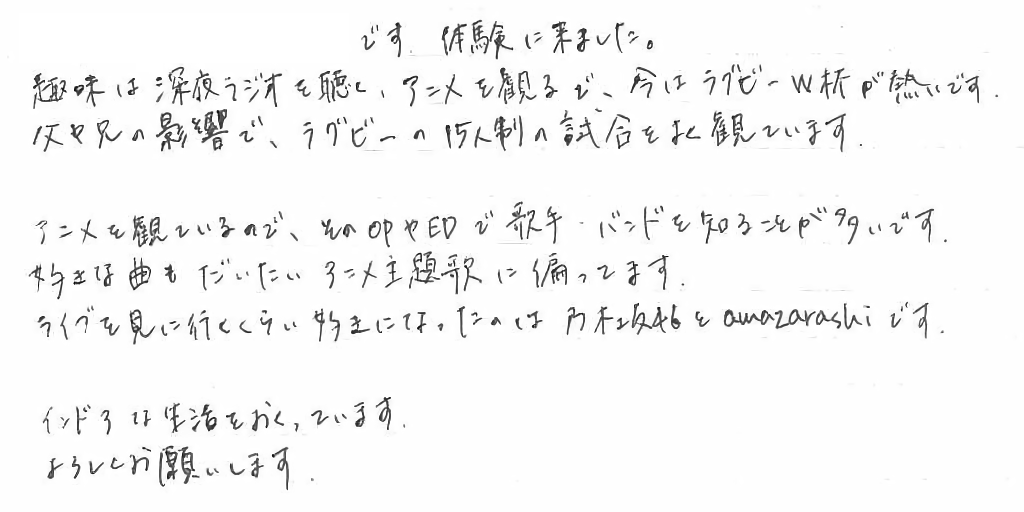 です. 体験に来ました。
趣味は深夜ラジオを聴く、アニメを観るで、今はラグビーW杯が熱いです.
父や兄の影響で、ラグビーの15人制の試合をよく観ています.
アニメを観ているので、そのOPやEDで歌手・バンドを知ることが多いです.
好きな曲もだいたいアニメ主題歌に偏ってます.
ライブを見に行くくらい好きになったのは乃木坂46とamazarashiです.
インドアな生活をおくっています.
よろしくお願いします.